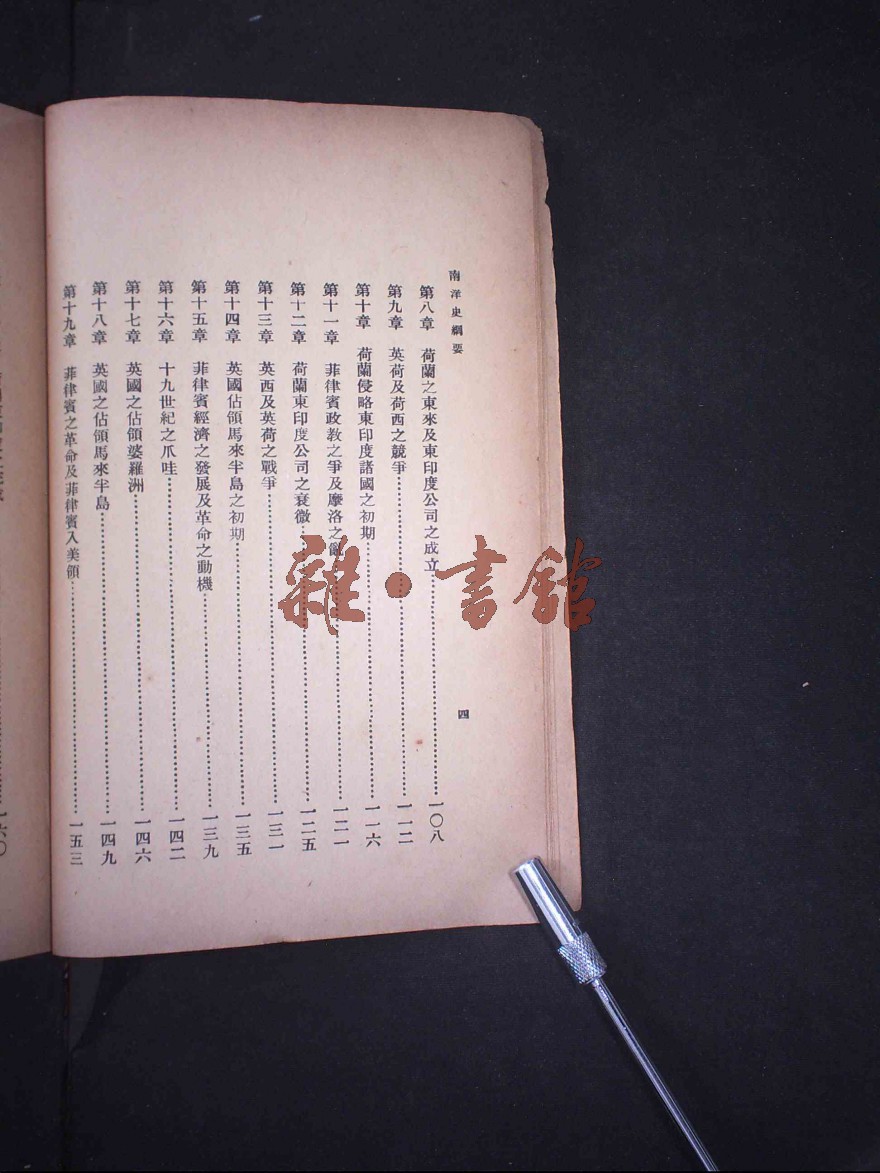 南洋史綱要
四
第八章 荷蘭之東來及東印度公司之成立……一〇八
第九章 英荷及荷西之競爭……一一二
第十章 荷蘭侵略東印度諸國之初期……一一六
第十一章 菲律賓政教之爭及摩洛之亂……一二一
第十二章 荷蘭東印度公司之衰微……一二五
第十三章 英西及英荷之戰爭……一三一
第十四章 英國佔領馬來半島之初期……一三五
第十五章 菲律賓經濟之發展及革命之動機……一三九
第十六章 十九世紀之爪哇……一四二
第十七章 英國之佔領婆羅洲……一四六
第十八章 英國之佔領馬來半島……一四九
第十九章 菲律賓之革命及菲律賓入美領……一五三
一六〇
雜·書館